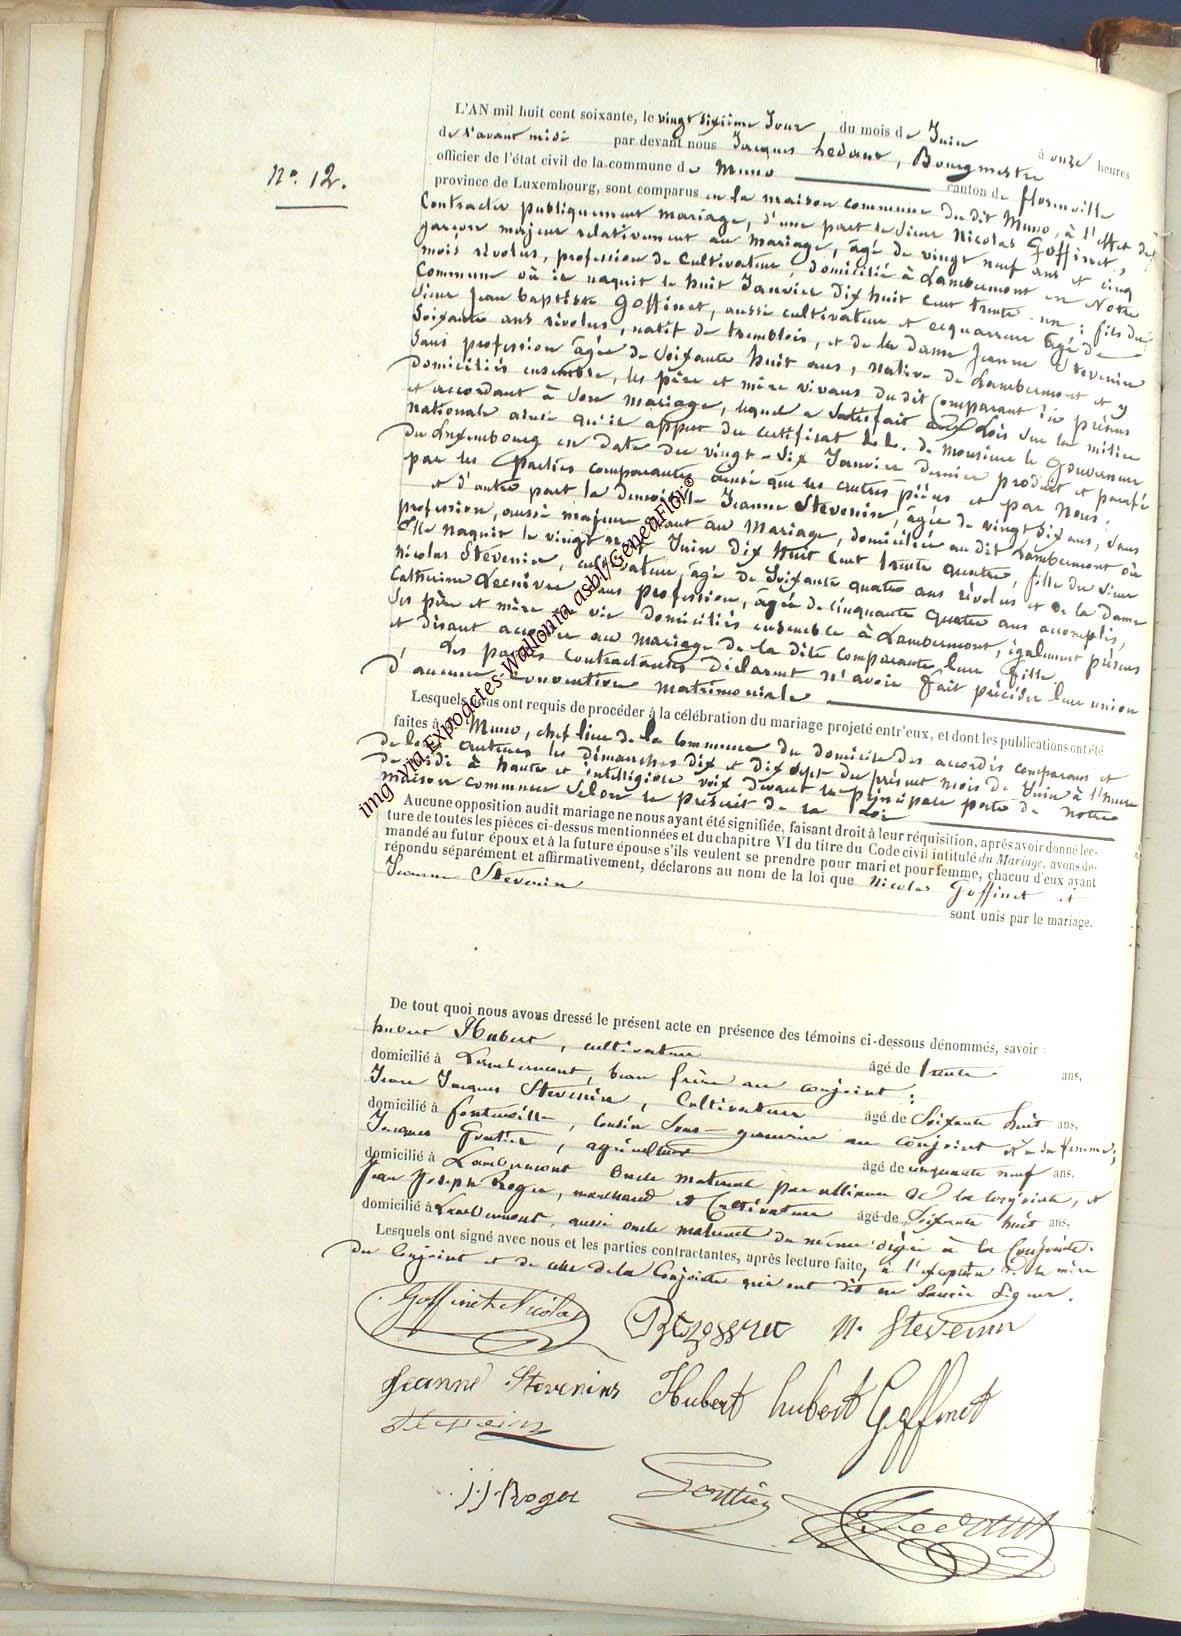 N°. 12.
L'AN mil huit cent soixante, le vingt sixième Jour du mois de Juin à onze heures
de l'avant midi par devant nous Jacques Ledant, Bourgmestre
officier de l'état civil de la commune de Muno canton de florenville
province de Luxembourg, sont comparus en la maison commune du dit Muno, à l'effet de
Contracter publiquement mariage, d'une part le Sieur Nicolas Goffinet,
garçon majeur relativement au mariage, âgé de vingt neuf ans et cinq
mois révolus, profession de Cultivateur, domicilié à Lambermont en Notre
Commune où il naquit le huit Janvier Dix huit Cent trente-un; fils du
Sieur Jean baptiste Goffinet, aussi cultivateur et equarreur âgé de
Soixante ans révolus, natif de tremblois, et de la dame Jeanne Stevenin
Sans profession âgée de Soixante huit ans, native de Lambermont et y
domiciliés ensemble, les père et mère vivans du dit Comparant ici présens
et accordant à Son mariage, lequel a Satisfait aux Lois Sur la milice
nationale ainsi qu'il appert du certificat de Monsieur le Gouverneur
du Luxembourg en date du vingt-Six Janvier dernier produit et paraphé
par les Parties comparantes ainsi que les autres pièces et par Nous.
et d'autre part la Demoiselle Jeanne Stevenin, âgée de vingt Six ans, Sans
profession, aussi majeure quant au Mariage, domiciliée au dit Lambermont où
Elle naquit le vingt Juin Dix huit Cent trente quatre, fille du Sieur
Nicolas Stevenin, cultivateur, âgé de Soixante quatre ans révolus et de la Dame
Catherine Lecuivre Sans profession, âgée de Cinquante quatre ans accomplis,
Ses père et mère en vie domiciliés ensemble à Lambermont, également présens
et disant accorder au mariage de la dite comparante leur fille.
Les parties Contractantes déclarent n'avoir fait précéder leur union
d'aucune Convention matrimoniale
Lesquels nous ont requis de procéder à la célébration du mariage projeté entr'eux, et dont les publications ont été
faites à Muno, chef lieu de la Commune du domicile des accordés comparans et
de leurs auteurs les dimanches Dix et Dix Sept du présent mois de Juin à l'heure
de midi à haute et intelligible voix devant la principale porte de notre
maison commune Selon le préscrit de la Loi
Aucune opposition audit mariage ne nous ayant été signifiée, faisant droit à leur réquisition, après avoir donné lec-
ture de toutes les pièces ci-dessus mentionnées et du chapitre VI du titre du Code civil intitulé du Mariage, avons de-
mandé au futur époux et à la future épouse s'ils veulent se prendre pour mari et pour femme, chacun d'eux ayant
répondu séparément et affirmativement, déclarons au nom de la loi que Nicolas Goffinet et
Jeanne Stevenin
sont unis par le mariage.
De tout quoi nous avons dressé le présent acte en présence des témoins ci-dessous dénommés, savoir :
hubert Hubert, cultivateur âgé de trente ans,
domicilié à Lambermont, beau frère au conjoint;
Jean Jacques Stevenin, Cultivateur âgé de Soixante huit ans,
domicilié à fontenoille, Cousin Sous-germain au Conjoint et à la femme;
Jacques Gontier, agriculteur âgé de cinquante neuf ans,
domicilié à Lambermont Oncle maternel par alliance de la Conjointe, et
Jean Joseph Roger, marchand et Cultivateur âgé de Soixante huit ans,
domicilié à Lambermont, aussi oncle maternel du même dégré à la Conjointe.
Lesquels ont signé avec nous et les parties contractantes, après lecture faite, à l'exception de la mère
du Conjoint et de celle de la Conjointe qui ont dit ne Savoir Signer.
Goffinet Nicolas
N. Stevenin
Jeanne Stevenins Hubert hubert Goffinet
Stevenin
J.J. Roger Gontier
Ledant
img via Expoactes-Wallonia asbl/GeneaFloi©